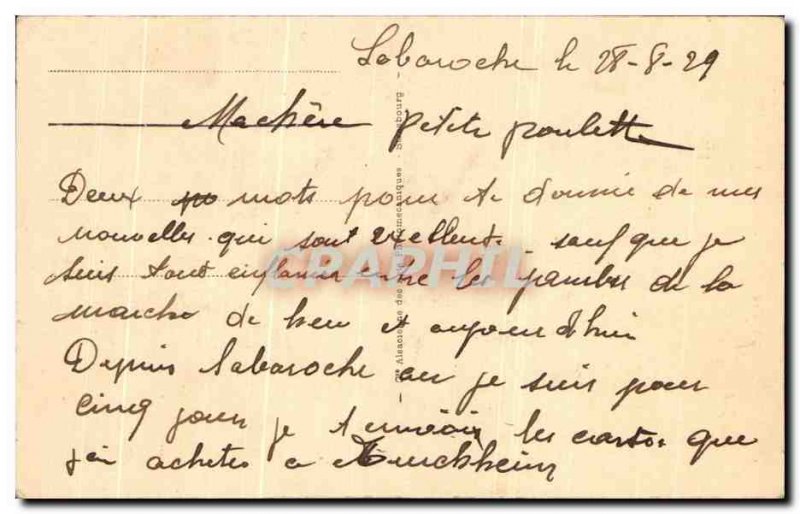 Labaroche le 28-8-29
Ma chère petite poulette
Deux mots pour te donner de mes
nouvelles qui sont excellente, sauf que je
suis tout enflamer entre les jambes de la
marche de hier et aujourd'hui
Depuis Labaroche ou je suis pour
cinq jours je t'envoie les cartes que
j'ai achetes a Turckheim
CPAPHIL
Alsacienne des Arts Photomécaniques - Strasbourg